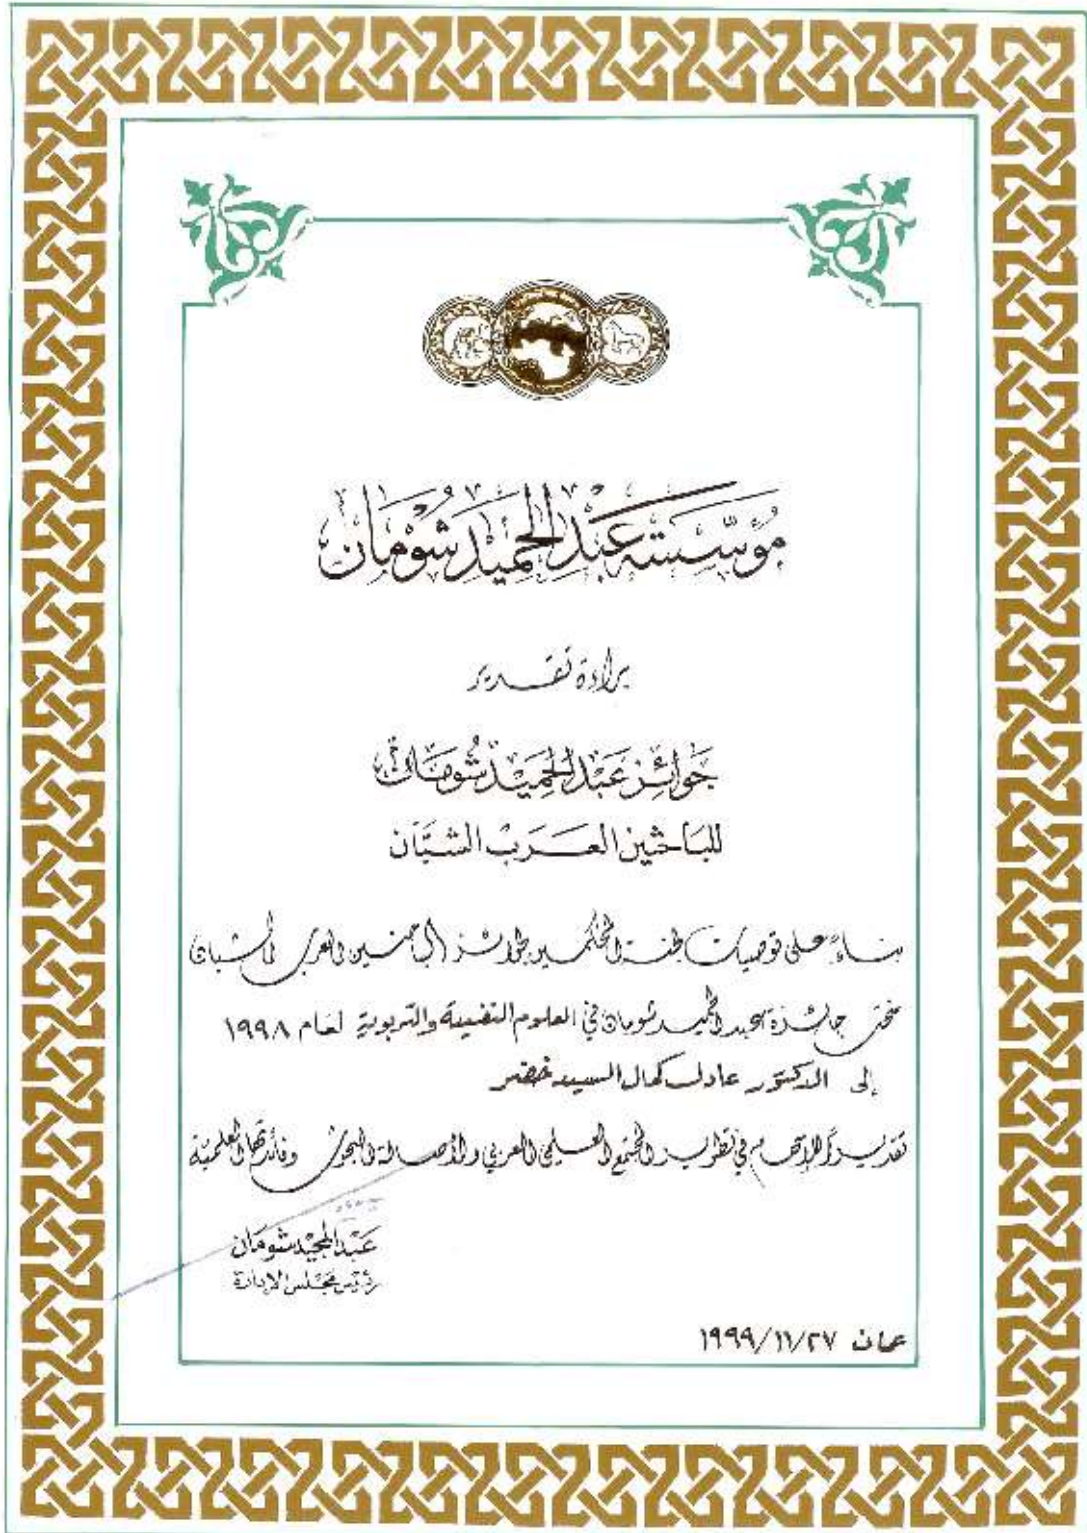 مؤسسة عبد الحميد شومان
براءة تقدير
جوائز عبد الحميد شومان
للباحثين العرب الشبان
بناءً على توصيات لجنة المحكمين لجوائز الباحثين العرب الشبان
منحت جائزة عبد الحميد شومان في العلوم النفسية والتربوية لعام ١٩٩٨
إلى الدكتور عادل كمال السيد خضر
تقديراً للإسهام في تطوير المجتمع العلمي العربي ولأصالة البحوث وفائدتها العلمية
عبد المجيد شومان
رئيس مجلس الإدارة
عمان ١٩٩٩/١١/٢٧